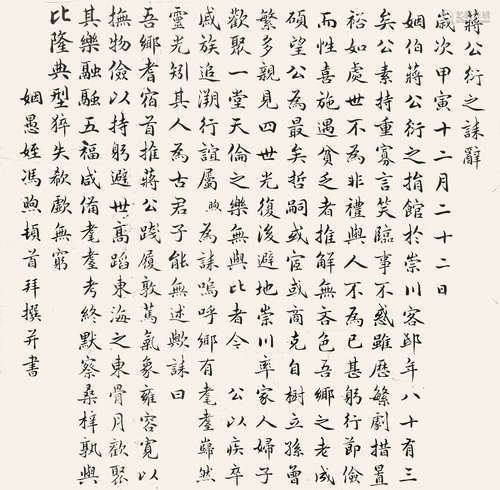 蔣公衍之誄辭
歲次甲寅十二月二十二日
姻伯蔣公衍之捐館於崇川客邸年八十有三
矣公素持重寡言笑臨事不惑雖歷繁劇措置
裕如處世不為非禮與人不為已甚躬行節儉
而性喜施遇貧乏者推解無吝色吾鄉之老成
碩望公為最矣哲嗣或宦或商克自樹立孫曾
繁多親見四世光復後避地崇川率家人婦子
歡聚一堂天倫之樂無與比者今 公以疾卒
戚族追溯行誼屬 煦 為誄嗚呼鄉有耄耋巋然
靈光矧其人為古君子能無述歟誄曰
吾鄉耆宿首推蔣公踐履敦篤氣象雍容寬以
撫物儉以持躬避世高蹈東海之東骨月歡聚
其樂融融五福咸備耄耋考終默察桑梓孰與
比隆典型猝失欷歔無窮
姻愚姪馮煦頓首拜撰并書